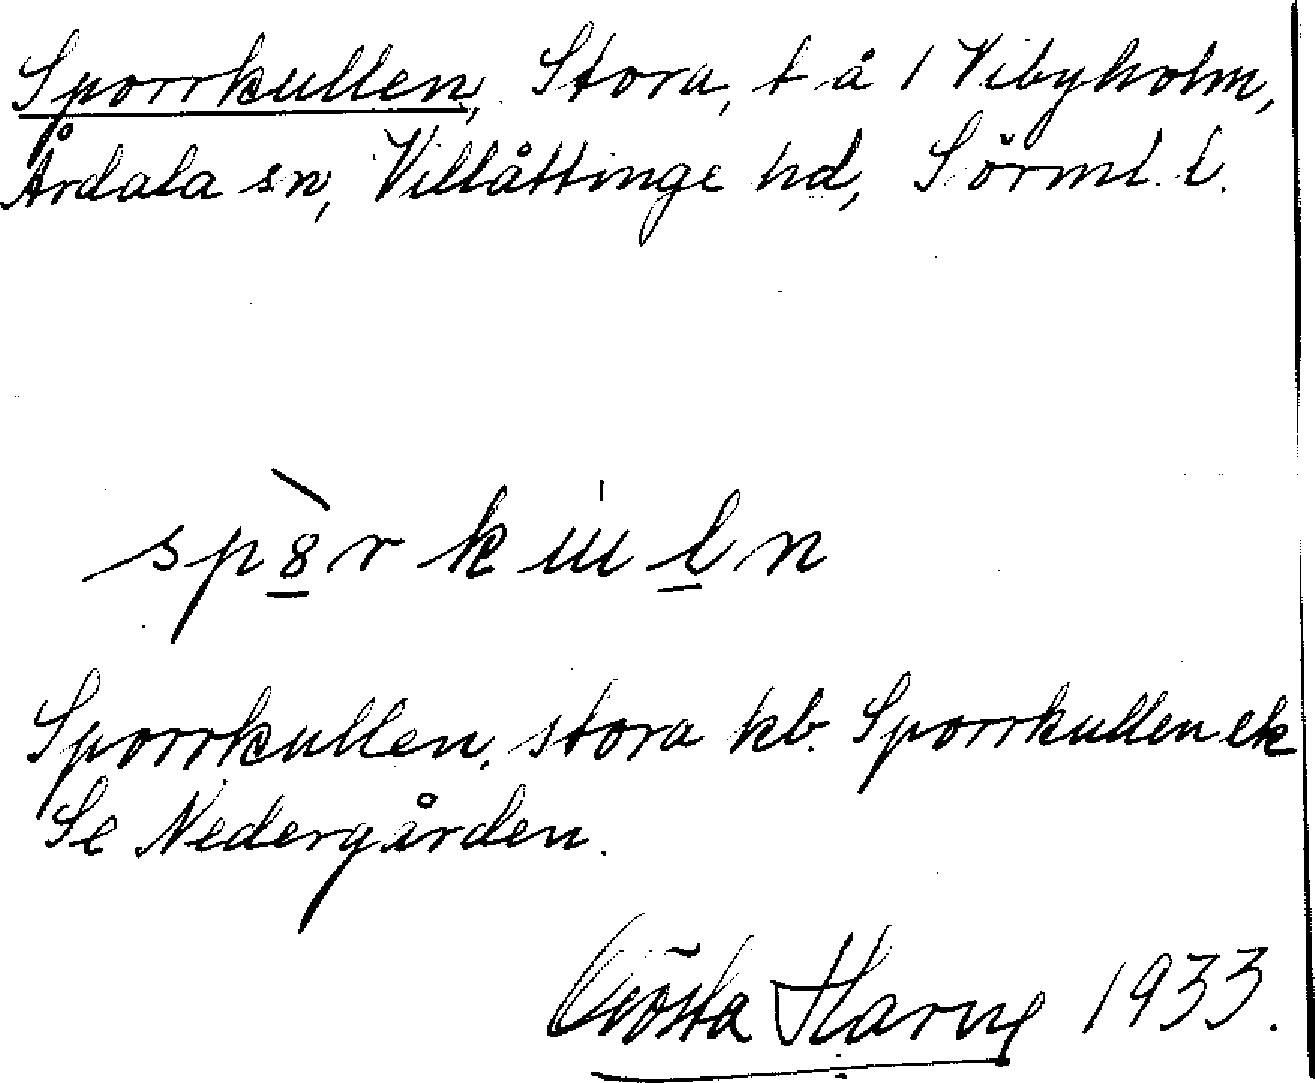 Sporrkullen, Stora, t å 1 Vibyholm,
Årdala sn, Villåttinge hd, Sörml. l.
Sporrkullen, stora kb. Sporrkullen ek
Se Nedergården.
Gösta Harng 1933.